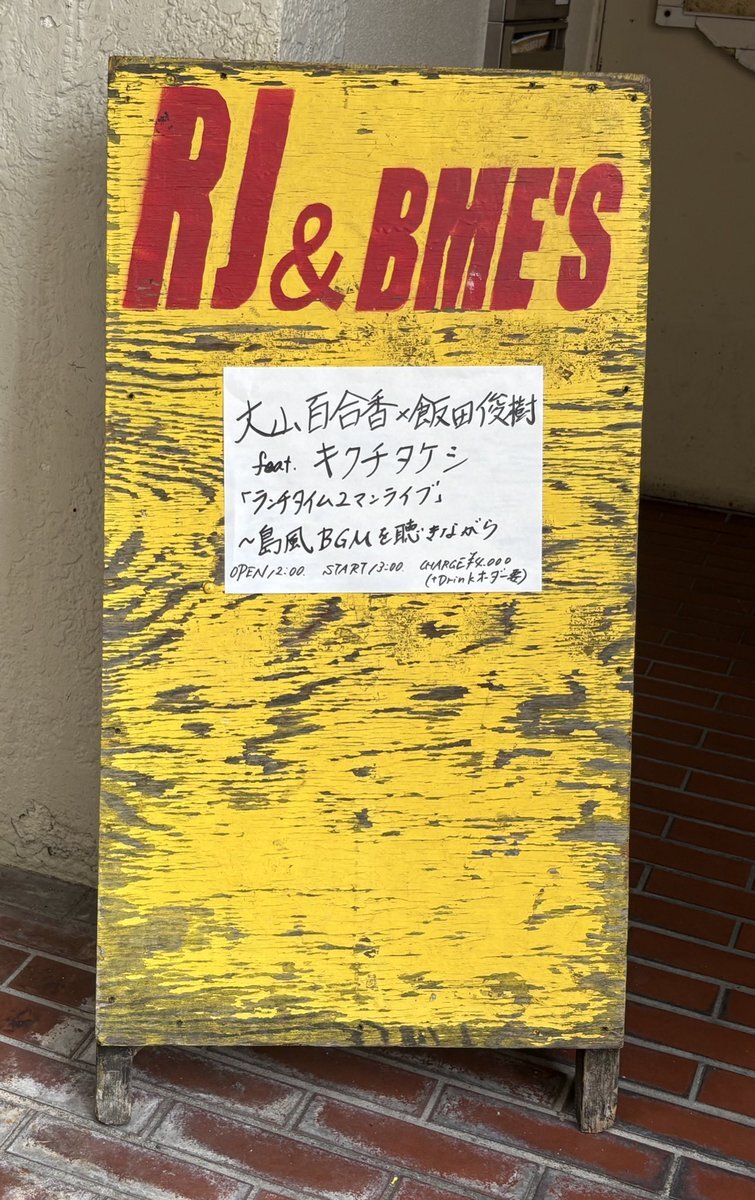 RJ & BME'S
大山百合香×飯田俊樹
feat. キクチタケシ
「ランチタイム2マンライブ」
~島風BGMを聴きながら
OPEN 12:00. START 13:00. CHARGE ¥4.000
(+Drinkオーダー要)